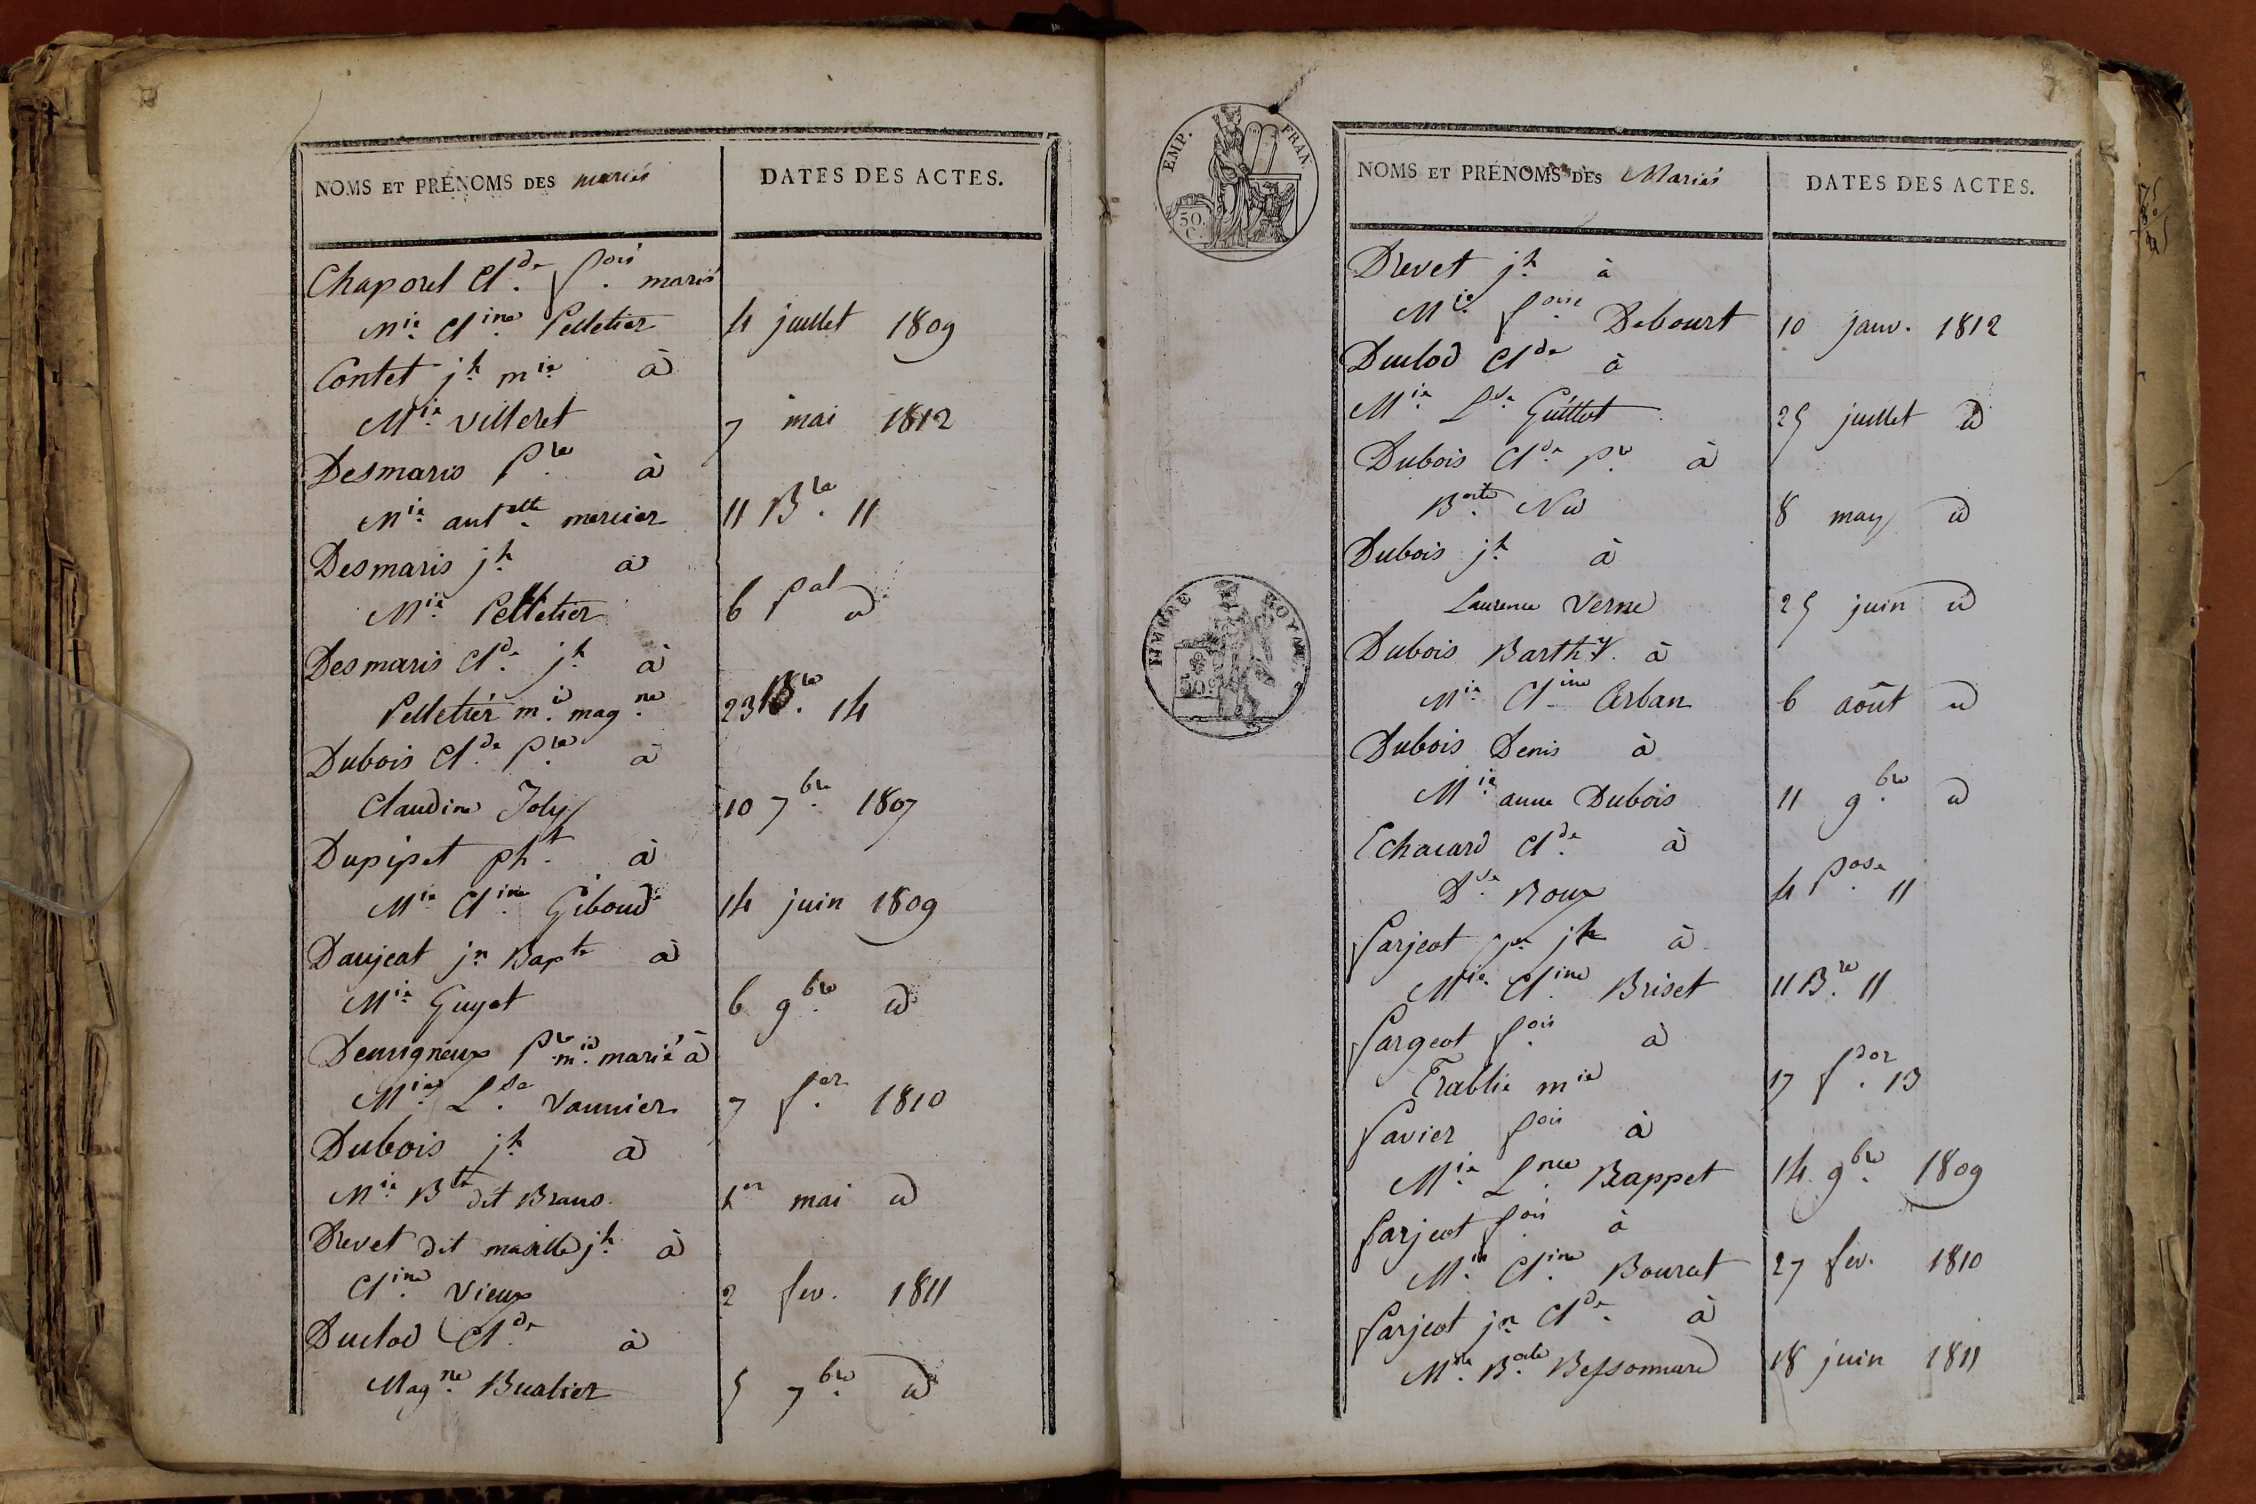 NOMS ET PRÉNOMS DES mariés
DATES DES ACTES.
Chaporel Cl.de f.ois marié
M.ie Cl.ine Pelletier 4 juillet 1809
Contet j.h m.ie à
M.ie Villeret 7 mai 1812
Desmaris P.re à
M.ie ant.elle mercier 11 B.re 11
Desmaris j.h à
M.ie Pelletier 6 P.al id
Desmaris Cl.de j.h à
Pelletier m.ie mag.ne 23 B.re 14
Dubois Cl.de P.re à
Claudine Joly 10 7.bre 1807
Dupipet ph.t à
M.ie Cl.ine Giboud 14 juin 1809
Daujeat j.n Bap.te à
M.ie Guyot 6 9.bre id
P.re m.ie marié à
M.ie L.se Vannier 7 f.er 1810
Dubois j.h à
M.ie B.te dit Brano 1er mai id
Drevet dit j.h à
Cl.ine Vieux 2 fev. 1811
Duclod Cl.de à
Mag.ne Bualier 5 7.bre id
EMP. FRAN.
50 C.
TIMBRE ROYAL
50 c
NOMS ET PRÉNOMS DES Mariés
DATES DES ACTES.
Drevet j.h à
M.ie f.oise Debourt 10 janv. 1812
Duclod Cl.de à
M.ie L.se Guillot 25 juillet id
Dubois Cl.de p.re à
B.arte Nid 8 may id
Dubois j.h à
Laurence Verne 25 juin id
Dubois Barth.y à
M.ie Cl.ine Cerban 6 août id
Dubois Denis à
M.ie anne Dubois 11 9.bre id
Echacard Cl.de à
D.se Roux 4 P.ose 11
farjeot j.h à
M.ie Cl.ine Briset 11 B.re 11
fargeot f.ois à
Trablie m.ie 17 f.dor 13
favier f.ois à
M.ie L.nce Rappet 14 9.bre 1809
farjeot f.ois à
M.ie Cl.ine Bourat 27 fev. 1810
farjeot j.n Cl.de à
M.ie B.arte Bessonnard 18 juin 1811